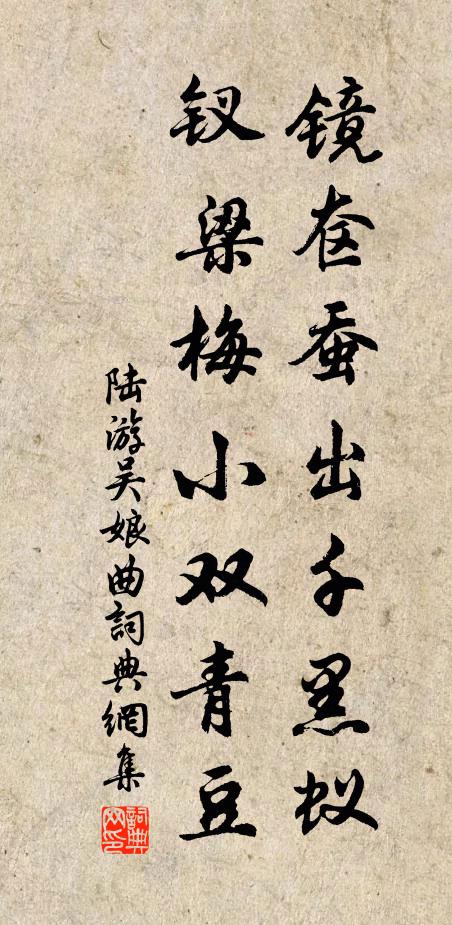 镜奁蚕出千黑蚁
钗梁梅小双青豆
陆游吴娘曲詞典網集
詞典網印